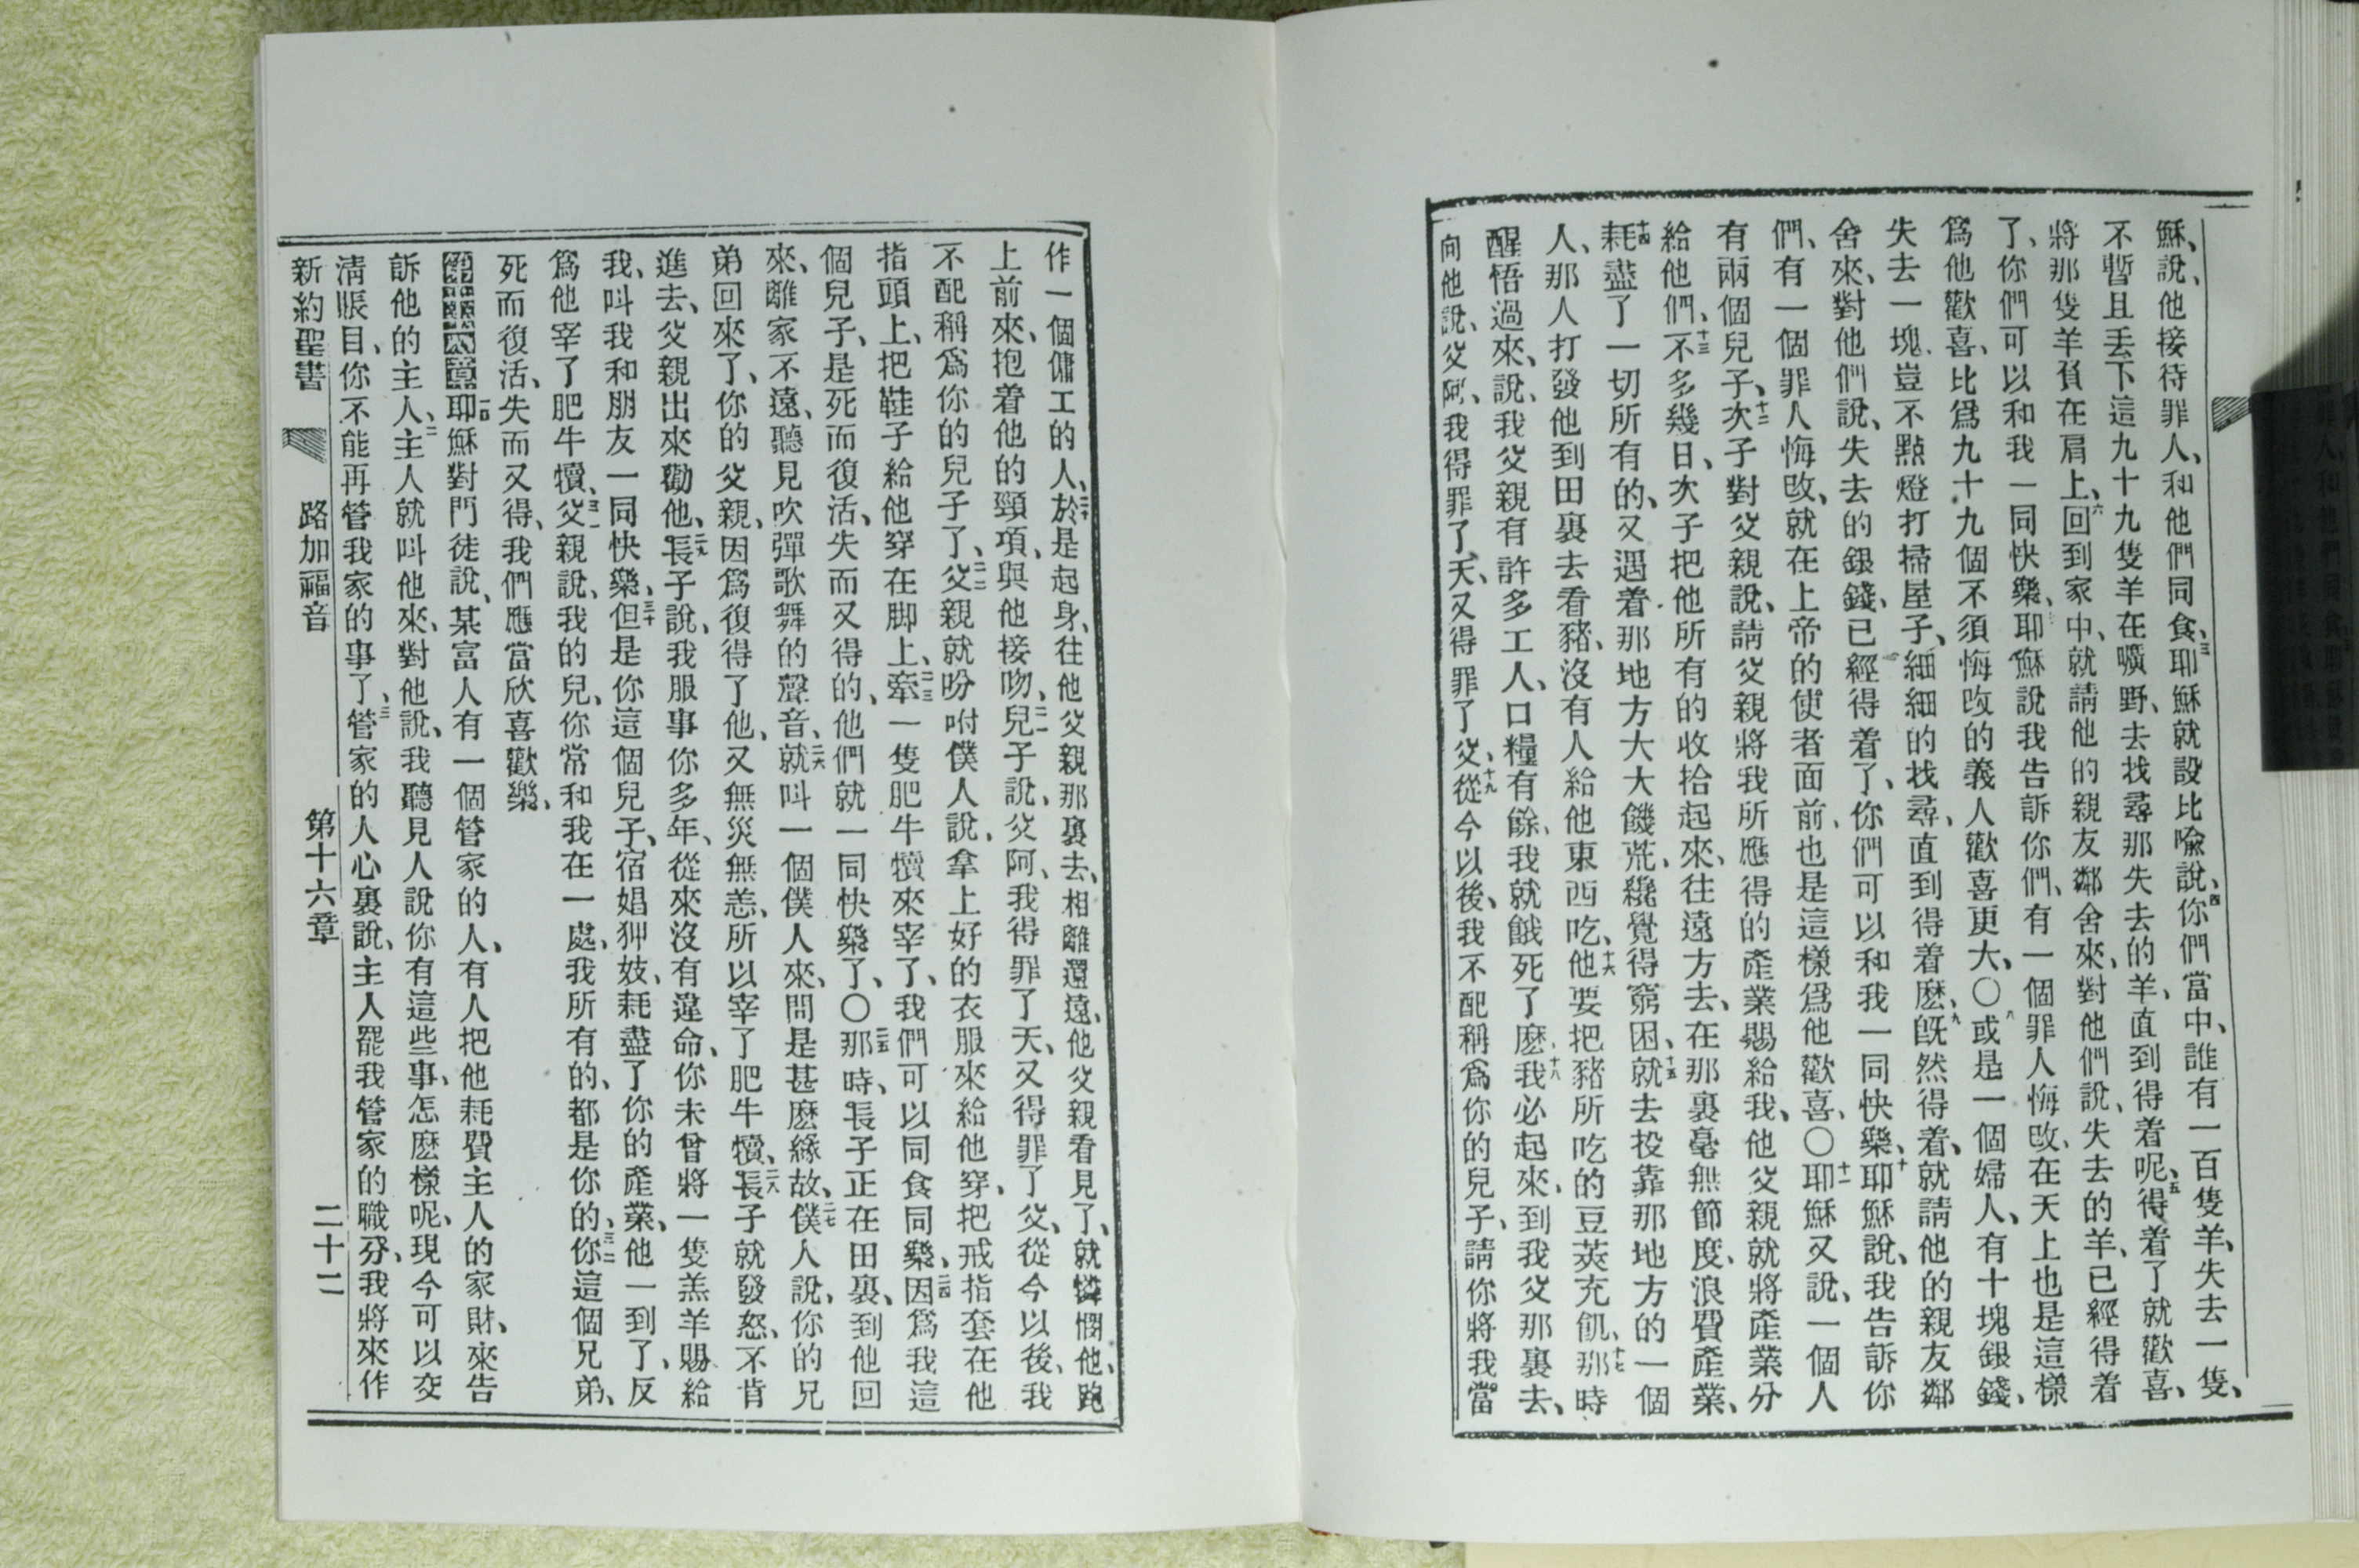 穌、說、他接待罪人、和他們同食、三耶穌就設比喩說、四你們當中、誰有一百隻羊、失去一隻、
不暫且丟下這九十九隻羊在曠野、去找尋那失去的羊、直到得着呢、五得着了就歡喜、
將那隻羊負在肩上、六回到家中、就請他的親友鄰舍來、對他們說、失去的羊、已經得着
了、你們可以和我一同快樂、耶穌說我告訴你們、有一個罪人悔改、在天上也是這樣
爲他歡喜、比爲九十九個不須悔改的義人歡喜更大、〇八或是一個婦人、有十塊銀錢、
失去一塊、豈不點燈打掃屋子、細細的找尋、直到得着麽、九旣然得着、就請他的親友鄰
舍來、對他們說、失去的銀錢、已經得着了、你們可以和我一同快樂、十耶穌說、我告訴你
們、有一個罪人悔改、就在上帝的使者面前、也是這樣爲他歡喜、〇十一耶穌又說、一個人
有兩個兒子、十二次子對父親說、請父親將我所應得的產業賜給我、他父親就將產業分
給他們、十三不多幾日、次子把他所有的收拾起來、往遠方去、在那裏毫無節度、浪費產業、
十四耗盡了一切所有的、又遇着那地方大大饑荒、纔覺得窮困、十五就去投靠那地方的一個
人、那人打發他到田裏去看豬、沒有人給他東西吃、十六他要把豬所吃的豆莢充飢、十七那時
醒悟過來、說、我父親有許多工人、口糧有餘、我就餓死了麽、十八我必起來、到我父那裏去、
向他說、父阿、我得罪了天、又得罪了父、十九從今以後、我不配稱爲你的兒子、請你將我當
作一個傭工的人、二十於是起身、往他父親那裏去、相離還遠、他父親看見了、就憐憫他、跑
上前來、抱着他的頸項、與他接吻、二一兒子說、父阿、我得罪了天、又得罪了父、從今以後、我
不配稱爲你的兒子了、二二父親就吩咐僕人說、拿上好的衣服來給他穿、把戒指套在他
指頭上、把鞋子給他穿在脚上、二三牽一隻肥牛犢來宰了、我們可以同食同樂、二四因爲我這
個兒子、是死而復活、失而又得的、他們就一同快樂了、〇二五那時、長子正在田裏、到他回
來、離家不遠、聽見吹彈歌舞的聲音、二六就叫一個僕人來、問是甚麽緣故、二七僕人說、你的兄
弟回來了、你的父親、因爲復得了他、又無災無恙、所以宰了肥牛犢、二八長子就發怒、不肯
進去、父親出來勸他、二九長子說、我服事你多年、從來沒有違命、你未曾將一隻羔羊賜給
我、叫我和朋友一同快樂、三十但是你這個兒子、宿娼狎妓、耗盡了你的產業、他一到了、反
爲他宰了肥牛犢、三一父親說、我的兒、你常和我在一處、我所有的、都是你的、三二你這個兄弟、
死而復活、失而又得、我們應當欣喜歡樂、
第十六章一耶穌對門徒說、某富人有一個管家的人、有人把他耗費主人的家財、來告
訴他的主人、二主人就叫他來、對他說、我聽見人說你有這些事、怎麽樣呢、現今可以交
清賬目、你不能再管我家的事了、三管家的人心裏說、主人罷我管家的職分、我將來作
新約聖書 路加福音 第十六章 二十二